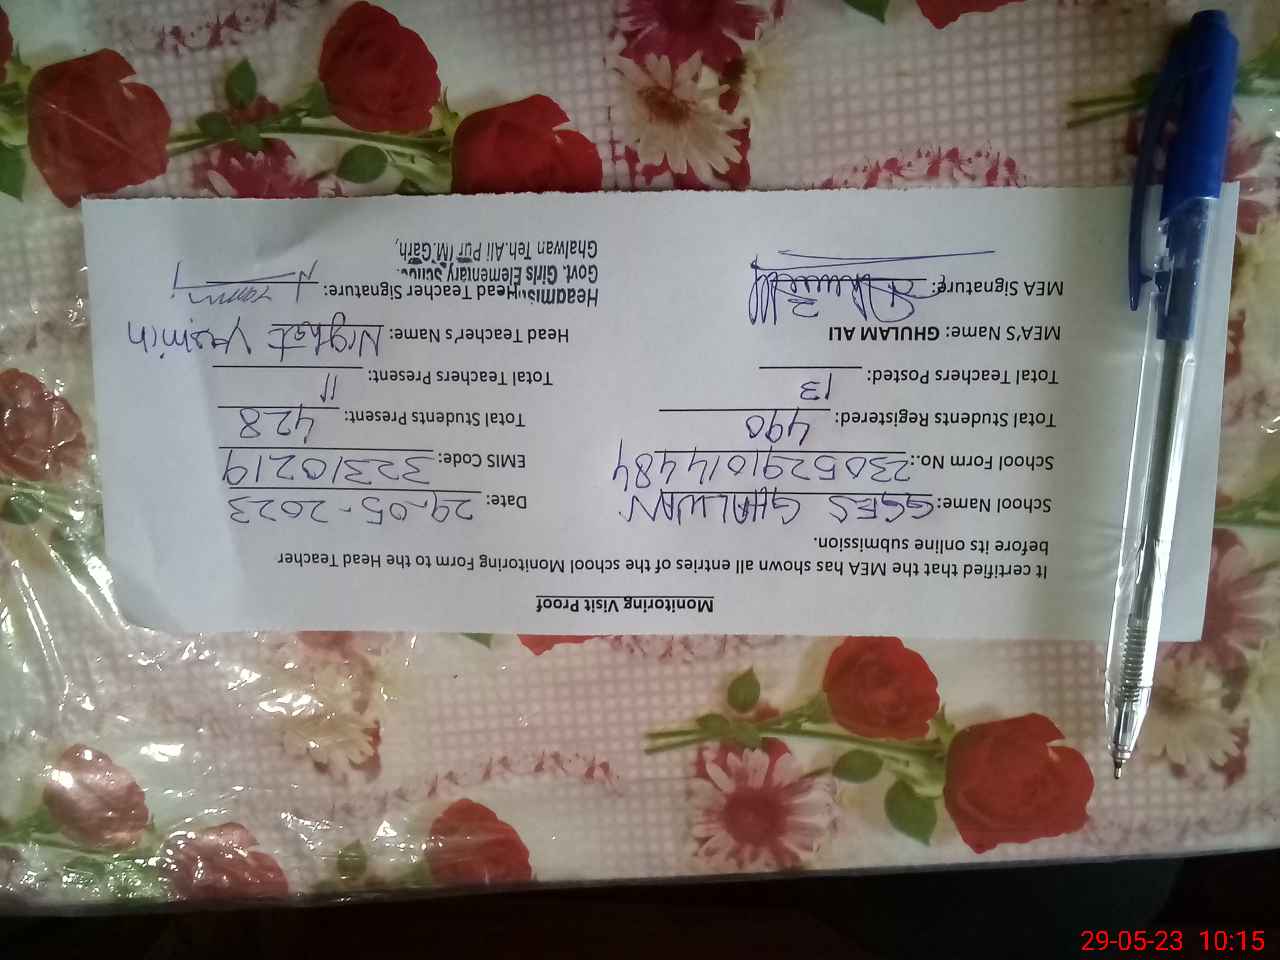 Monitoring Visit Proof
It certified that the MEA has shown all entries of the school Monitoring Form to the Head Teacher
before its online submission.
School Name: GGES GHALWAN Date: 29-05-2023
School Form No.: 2305291014484 EMIS Code: 32310219
Total Students Registered: 490 Total Students Present: 428
Total Teachers Posted: 13 Total Teachers Present: 11
MEA'S Name: GHULAM ALI Head Teacher's Name: Nighat Yasmin
MEA Signature: Head Teacher Signature:
Govt. Girls Elementary
Ghalwan Teh.Ali Pur (M.Garh,
29-05-23 10:15